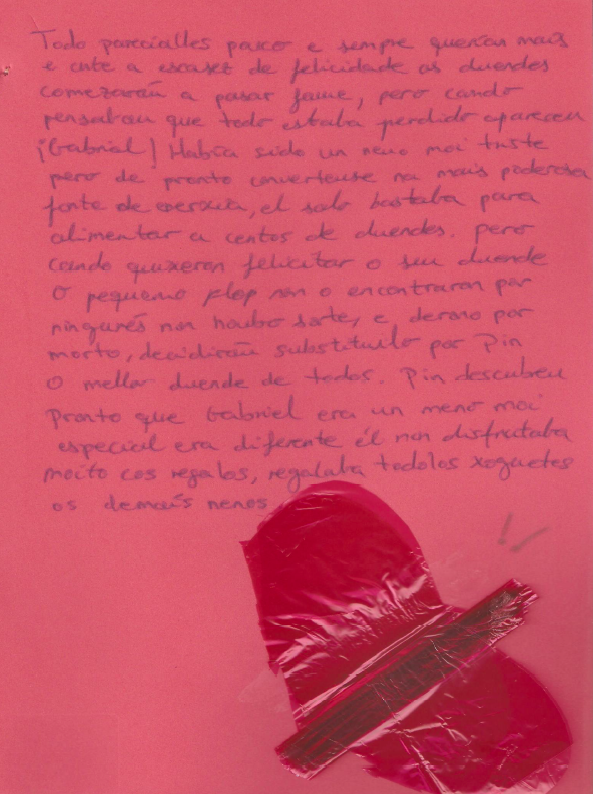 Todo parecialles pasco e sempre querían mais
e ante a escasez de felicidade os duendes
comezaron a pasar fame, pero cando
pensaban que todo estaba perdido apareceu
¡Gabriel! Había sido un neno moi triste
pero de pronto converteuse na mais poderosa
fonte de enerxía, el solo bastaba para
alimentar a centos de duendes. pero
cando quixeron felicitar o seu duende
o pequeno Plop non o encontraron por
ningures non houbo sorte, e derono por
morto, decidiron substituilo por Pin
o mellor duende de todos. Pin descubeu
pronto que Gabriel era un meno moi
especial era diferente él non disfrutaba
moito cos regalos, regalaba todolos xoguetes
os demais nenos